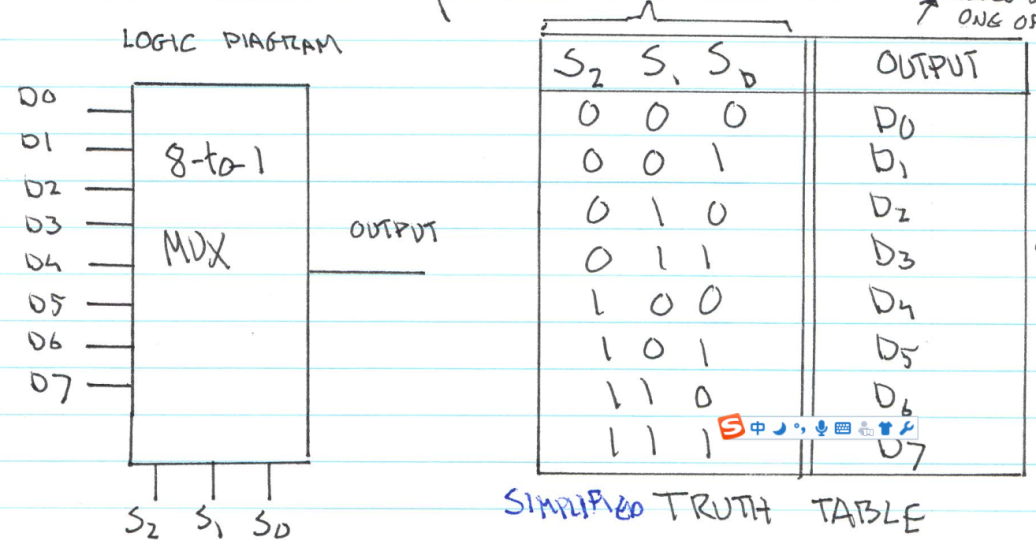 ONE OF
LOGIC DIAGRAM
D0
D1
D2
D3
D4
D5
D6
D7
8-to-1
MUX
OUTPUT
S2 S1 S0
S2 S1 S0 OUTPUT
0 0 0 D0
0 0 1 D1
0 1 0 D2
0 1 1 D3
1 0 0 D4
1 0 1 D5
1 1 0 D6
1 1 1 D7
S 中
SIMPLIFIED TRUTH TABLE